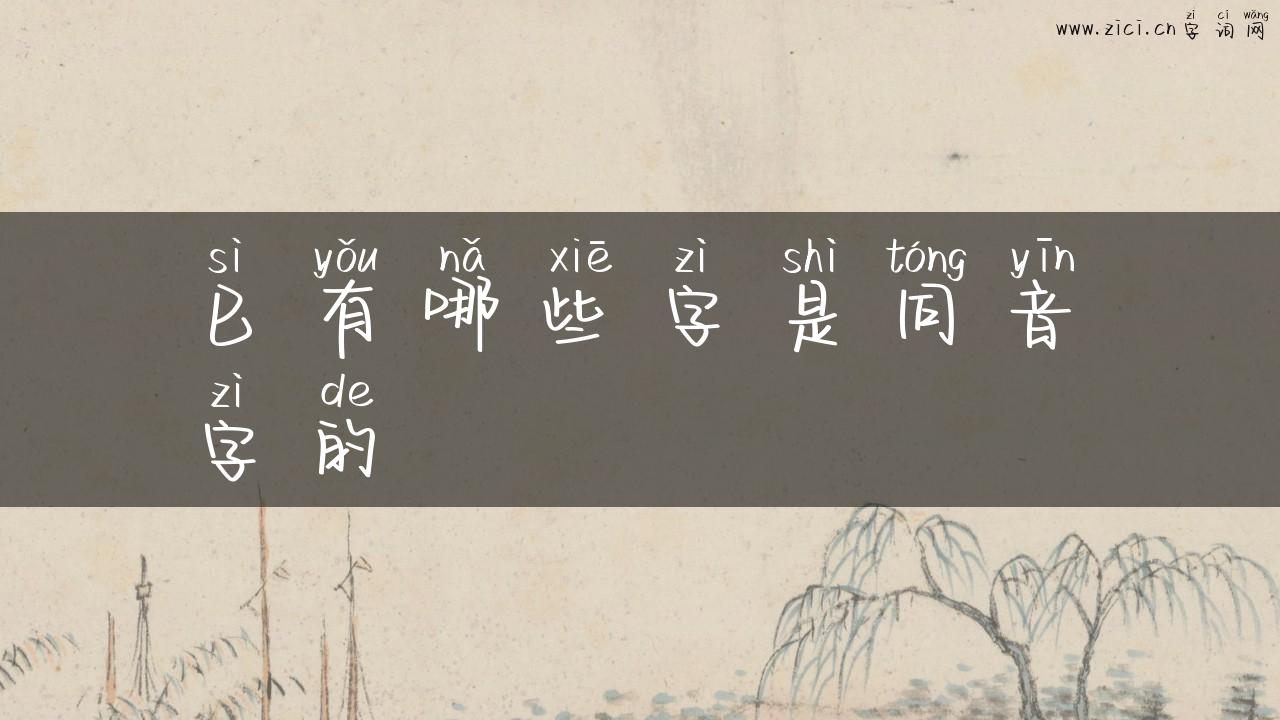 www.zici.cn
zì cí wǎng
字词网
sì yǒu nǎ xiē zì shì tóng yīn
巳有哪些字是同音
zì de
字的